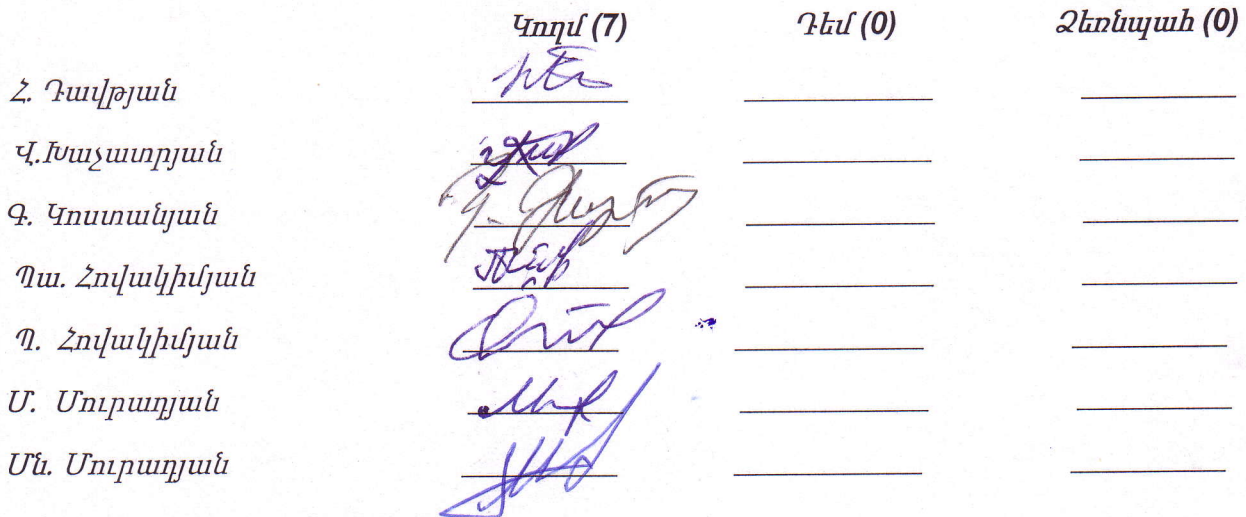 Կողմ (7) Դեմ (0) Ձեռնպահ (0)
Հ. Դավթյան
Վ.Խաչատրյան
Գ. Կոստանյան
Պա. Հովակիմյան
Պ. Հովակիմյան
Մ. Մուրադյան
Մն. Մուրադյան